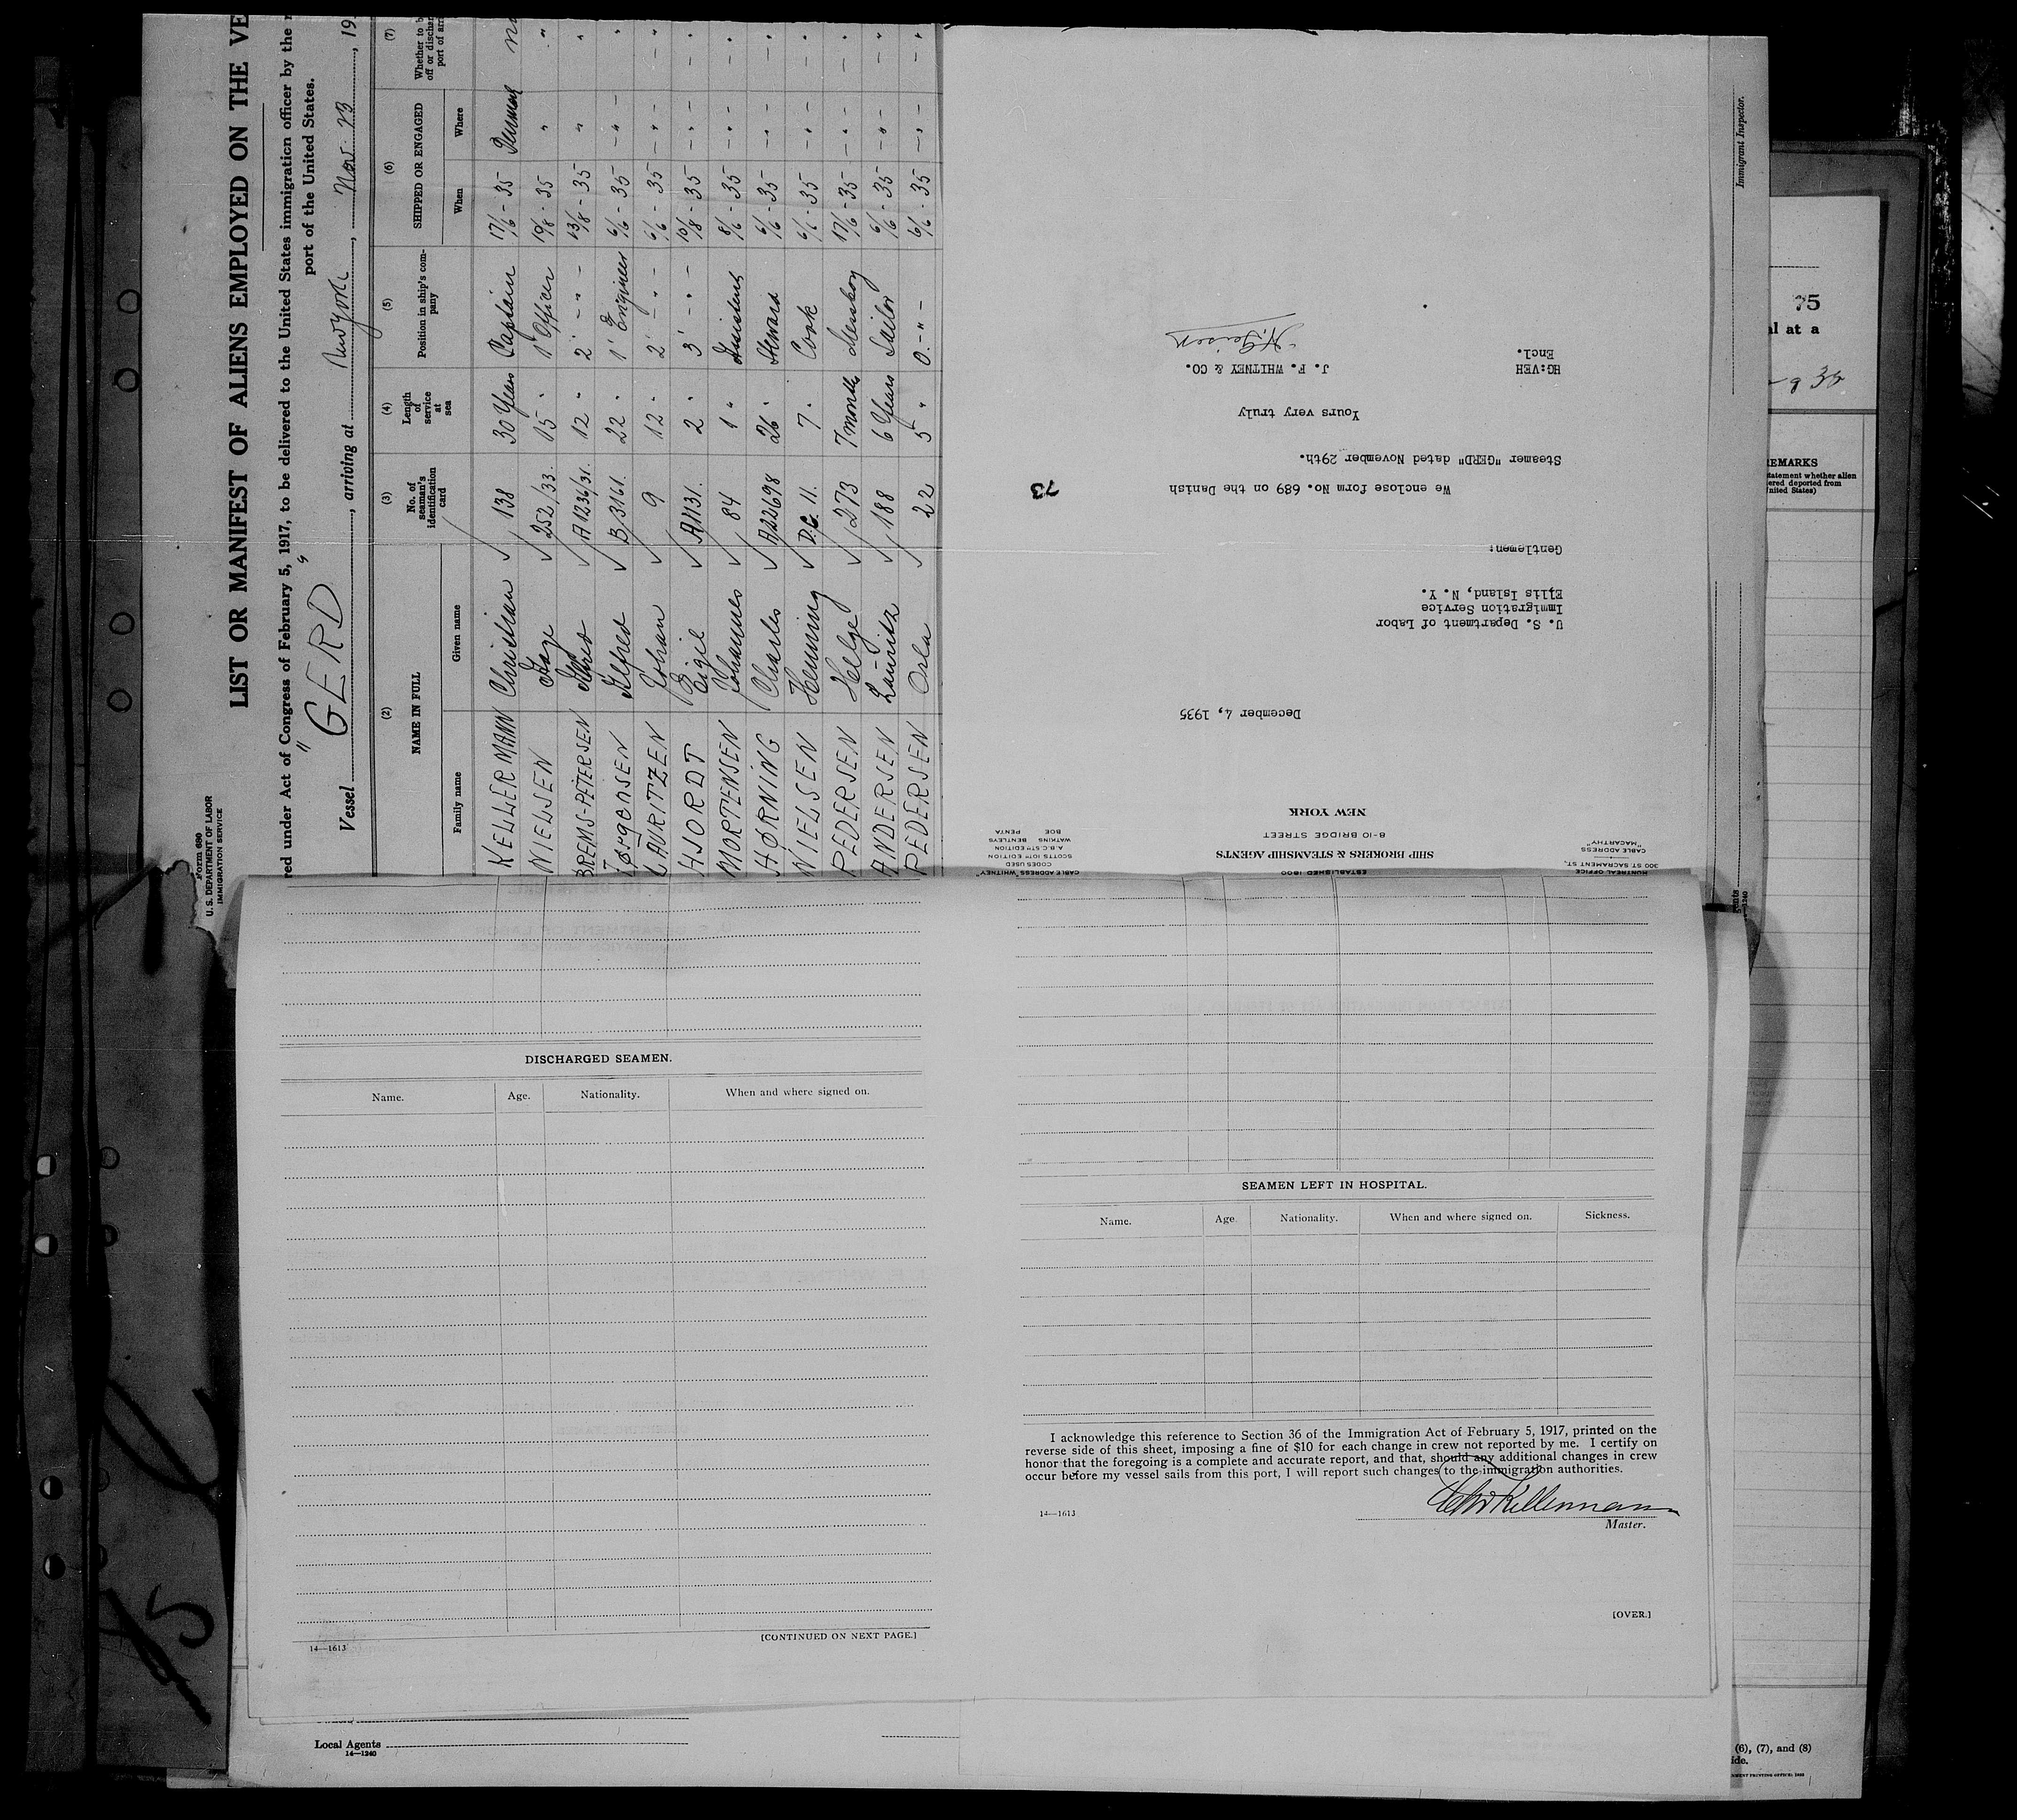 Form 680
U. S. DEPARTMENT OF LABOR
IMMIGRATION SERVICE
LIST OR MANIFEST OF ALIENS EMPLOYED ON THE VE
red under Act of Congress of February 5, 1917, to be delivered to the United States immigration officer by the
port of the United States.
Vessel "GERD", arriving at Newyork, Nov. 23, 19
(2) (3) (4) (5) (6) (7)
NAME IN FULL
Family name Given name
No. of seaman's identification card
Length of service at sea
Position in ship's company
SHIPPED OR ENGAGED
When Where
Whether to b
off or dischar
port of arri
KELLERMANN Christian 138 30 Years Captain 17/6 - 35 Denmark
NIELSEN Aage 252/33. 15 " 1' Officer 19/8 - 35 "
BREMS-PETERSEN Alfred A1236/31. 12 " 2' - " - 13/8 - 35 "
Jørgensen Alfred B3161. 22 " 1' Engineer 6/6 - 35 - " -
LAURITZEN Johan 9 12 " 2' - " - 6/6 - 35 - " -
HJORDT Eigil A1131. 2 " 3' - " - 10/8 - 35 - " -
MORTENSEN Johannes 84 1 " Assistent 8/6 - 35 - " -
HØRNING Charles A22698 26 " Steward 6/6 - 35 - " -
NIELSEN Henning D.C. 11. 7 " Cook 6/6 - 35 - " -
PEDERSEN Helge 273 7 months Messboy 17/6 - 35 - " -
ANDERSEN Lauritz 188 6 Years Sailor 6/6 - 35 - " -
PEDERSEN Orla 22 5 " O. - " - 6/6 - 35 - " -
MONTREAL OFFICE
300 ST. SACRAMENT ST.
CABLE ADDRESS
"MACARTHY"
ESTABLISHED 1800
SHIP BROKERS & STEAMSHIP AGENTS
8-10 BRIDGE STREET
NEW YORK
CABLE ADDRESS "WHITNEY"
CODES USED
SCOTTS 10TH EDITION
A.B.C. 5TH EDITION
WATKINS BENTLEYS
BOE PENTA
December 4, 1935
U. S. Department of Labor
Immigration Service
Ellis Island, N. Y.
Gentlemen:
We enclose form No. 689 on the Danish
Steamer "GERD" dated November 29th.
73
Yours very truly
J. F. WHITNEY & CO.
HG:VEH
Encl.
Immigrant Inspector.
75
al at a
35
REMARKS
statement whether alien
ered deported from
United States)
ents
14—1240
DISCHARGED SEAMEN.
Name. Age. Nationality. When and where signed on.
14—1613
[CONTINUED ON NEXT PAGE.]
SEAMEN LEFT IN HOSPITAL.
Name. Age Nationality. When and where signed on. Sickness.
I acknowledge this reference to Section 36 of the Immigration Act of February 5, 1917, printed on the
reverse side of this sheet, imposing a fine of $10 for each change in crew not reported by me. I certify on
honor that the foregoing is a complete and accurate report, and that, should any additional changes in crew
occur before my vessel sails from this port, I will report such changes to the immigration authorities.
Chr Kellermann
14—1613
Master.
[OVER.]
Local Agents
14—1240
(6), (7), and (8)
ide.